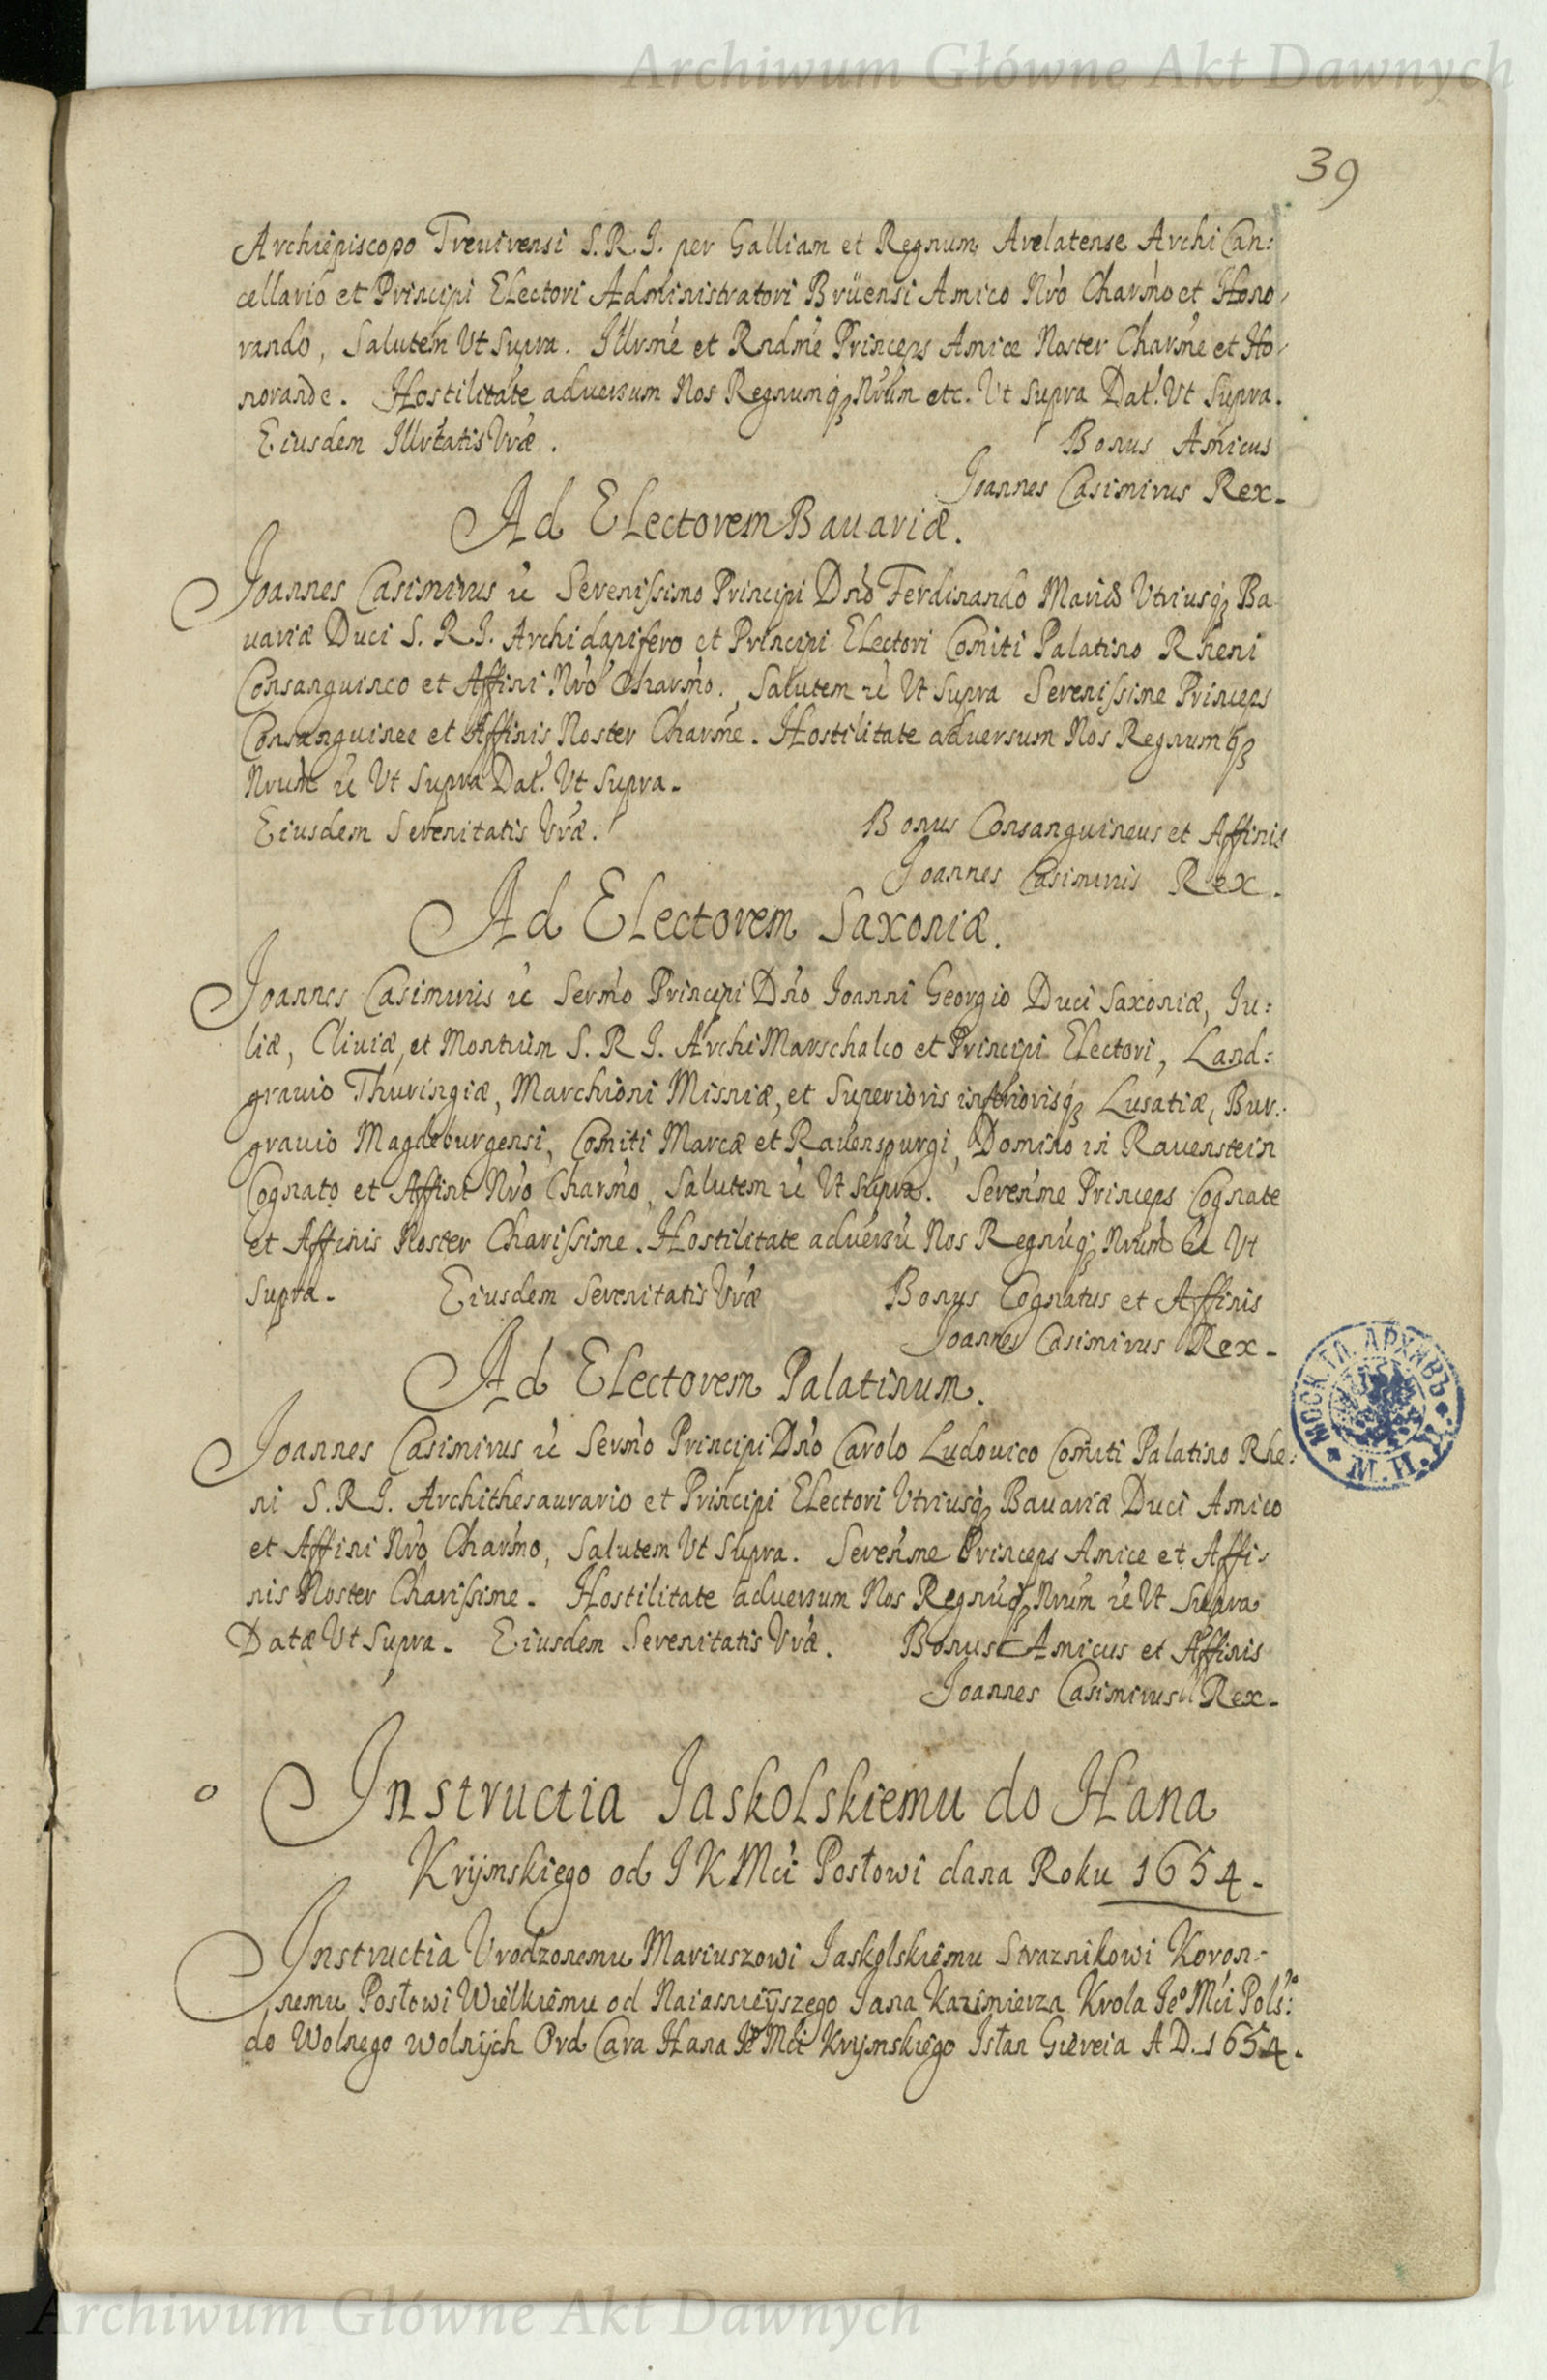 Archiwum Główne Akt Dawnych
39
Archiepiscopo Trevirensi S.R.I. per Galliam et Regnum Arelatense Archi Can:
cellario et Principi Electori Administratori Brüensi Amico Nro Charmo et Hono,
rando, Salutem Ut Supra. Illrme et Rndme Princeps Amice Noster Charme et Ho,
norande. Hostilitate adversum Nos Regnumq Nrum etc. Ut Supra Dat. Ut Supra.
Eiusdem Illrtatis Vræ. Bonus Amicus
Joannes Casimirus Rex.
Ad Electorem Bavariæ.
Joannes Casimirus &c Serenissimo Principi Dno Ferdinando Mariæ Utriusq Ba
uariæ Duci S. R. I. Archidapifero et Principi Electori Comiti Palatino Rheni
Consanguineo et Affini Nro Charmo, Salutem &c Ut Supra Serenissime Princeps
Consanguinee et Affinis Noster Charme. Hostilitate adversum Nos Regnumq
Nrum &c Ut Supra Dat. Ut Supra.
Eiusdem Serenitatis Vræ. Bonus Consanguineus et Affinis
Joannes Casimirus Rex.
Ad Electorem Saxoniæ.
Joannes Casimirus &c Sermo Principi Dno Joanni Georgio Duci Saxoniæ, Ju:
liæ, Cliviæ, et Montium S. R. I. Archi Marschalco et Principi Electori, Land:
gravio Thuringiæ, Marchioni Misniæ, et Superioris inferiorisq Lusatiæ, Bur:
gravio Magdeburgensi, Comiti Marcæ et Ravenspurgi, Domino in Ravenstein
Cognato et Affini Nro Charmo, Salutem &c Ut Supra. Serenme Princeps Cognate
et Affinis Noster Charissime. Hostilitate adversu Nos Regnuq Nrum &c Ut
Supra. Eiusdem Serenitatis Vræ Bonus Cognatus et Affinis
Joannes Casimirus Rex.
Ad Electorem Palatinum.
Joannes Casimirus &c Sermo Principi Dno Carolo Ludovico Comiti Palatino Rhe:
ni S.R.I. Archithesaurario et Principi Electori Utriusq Bavariæ Duci Amico
et Affini Nro Charmo, Salutem Ut Supra. Serenme Princeps Amice et Affi:
nis Noster Charissime. Hostilitate adversum Nos Regnuq Nrum &c Ut Supra
Datæ Ut Supra. Eiusdem Serenitatis Vræ. Bonus Amicus et Affinis
Joannes Casimirus Rex.
МОСК. ГЛ. АРХИВЪ
М.И.Д.
Instructia Jaskolskiemu do Hana
Krÿmskiego od J K Mci Posłowi dana Roku 1654.
Instructia Urodzonemu Mariuszowi Jaskolskiemu Straznikowi Koron:
nemu Posłowi Wielkiemu od Naiasnieÿszego Jana Kazimierza Krola Jeo Mci Pols:
do Wolnego wolnÿch Ord Cara Hana Jeo Mci Krymskiego Islan Giereia A D. 1654.
Archiwum Główne Akt Dawnych